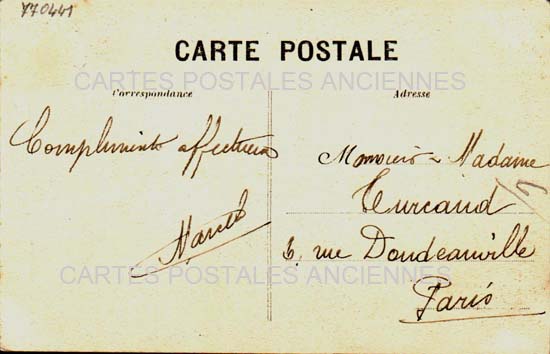 770441
CARTE POSTALE
CARTES POSTALES ANCIENNES
Correspondance
Adresse
Compliments affectueux
Marcel
Monsieur & Madame
Turcaud
6, rue Doudeauville
Paris
CARTES POSTALES ANCIENNES